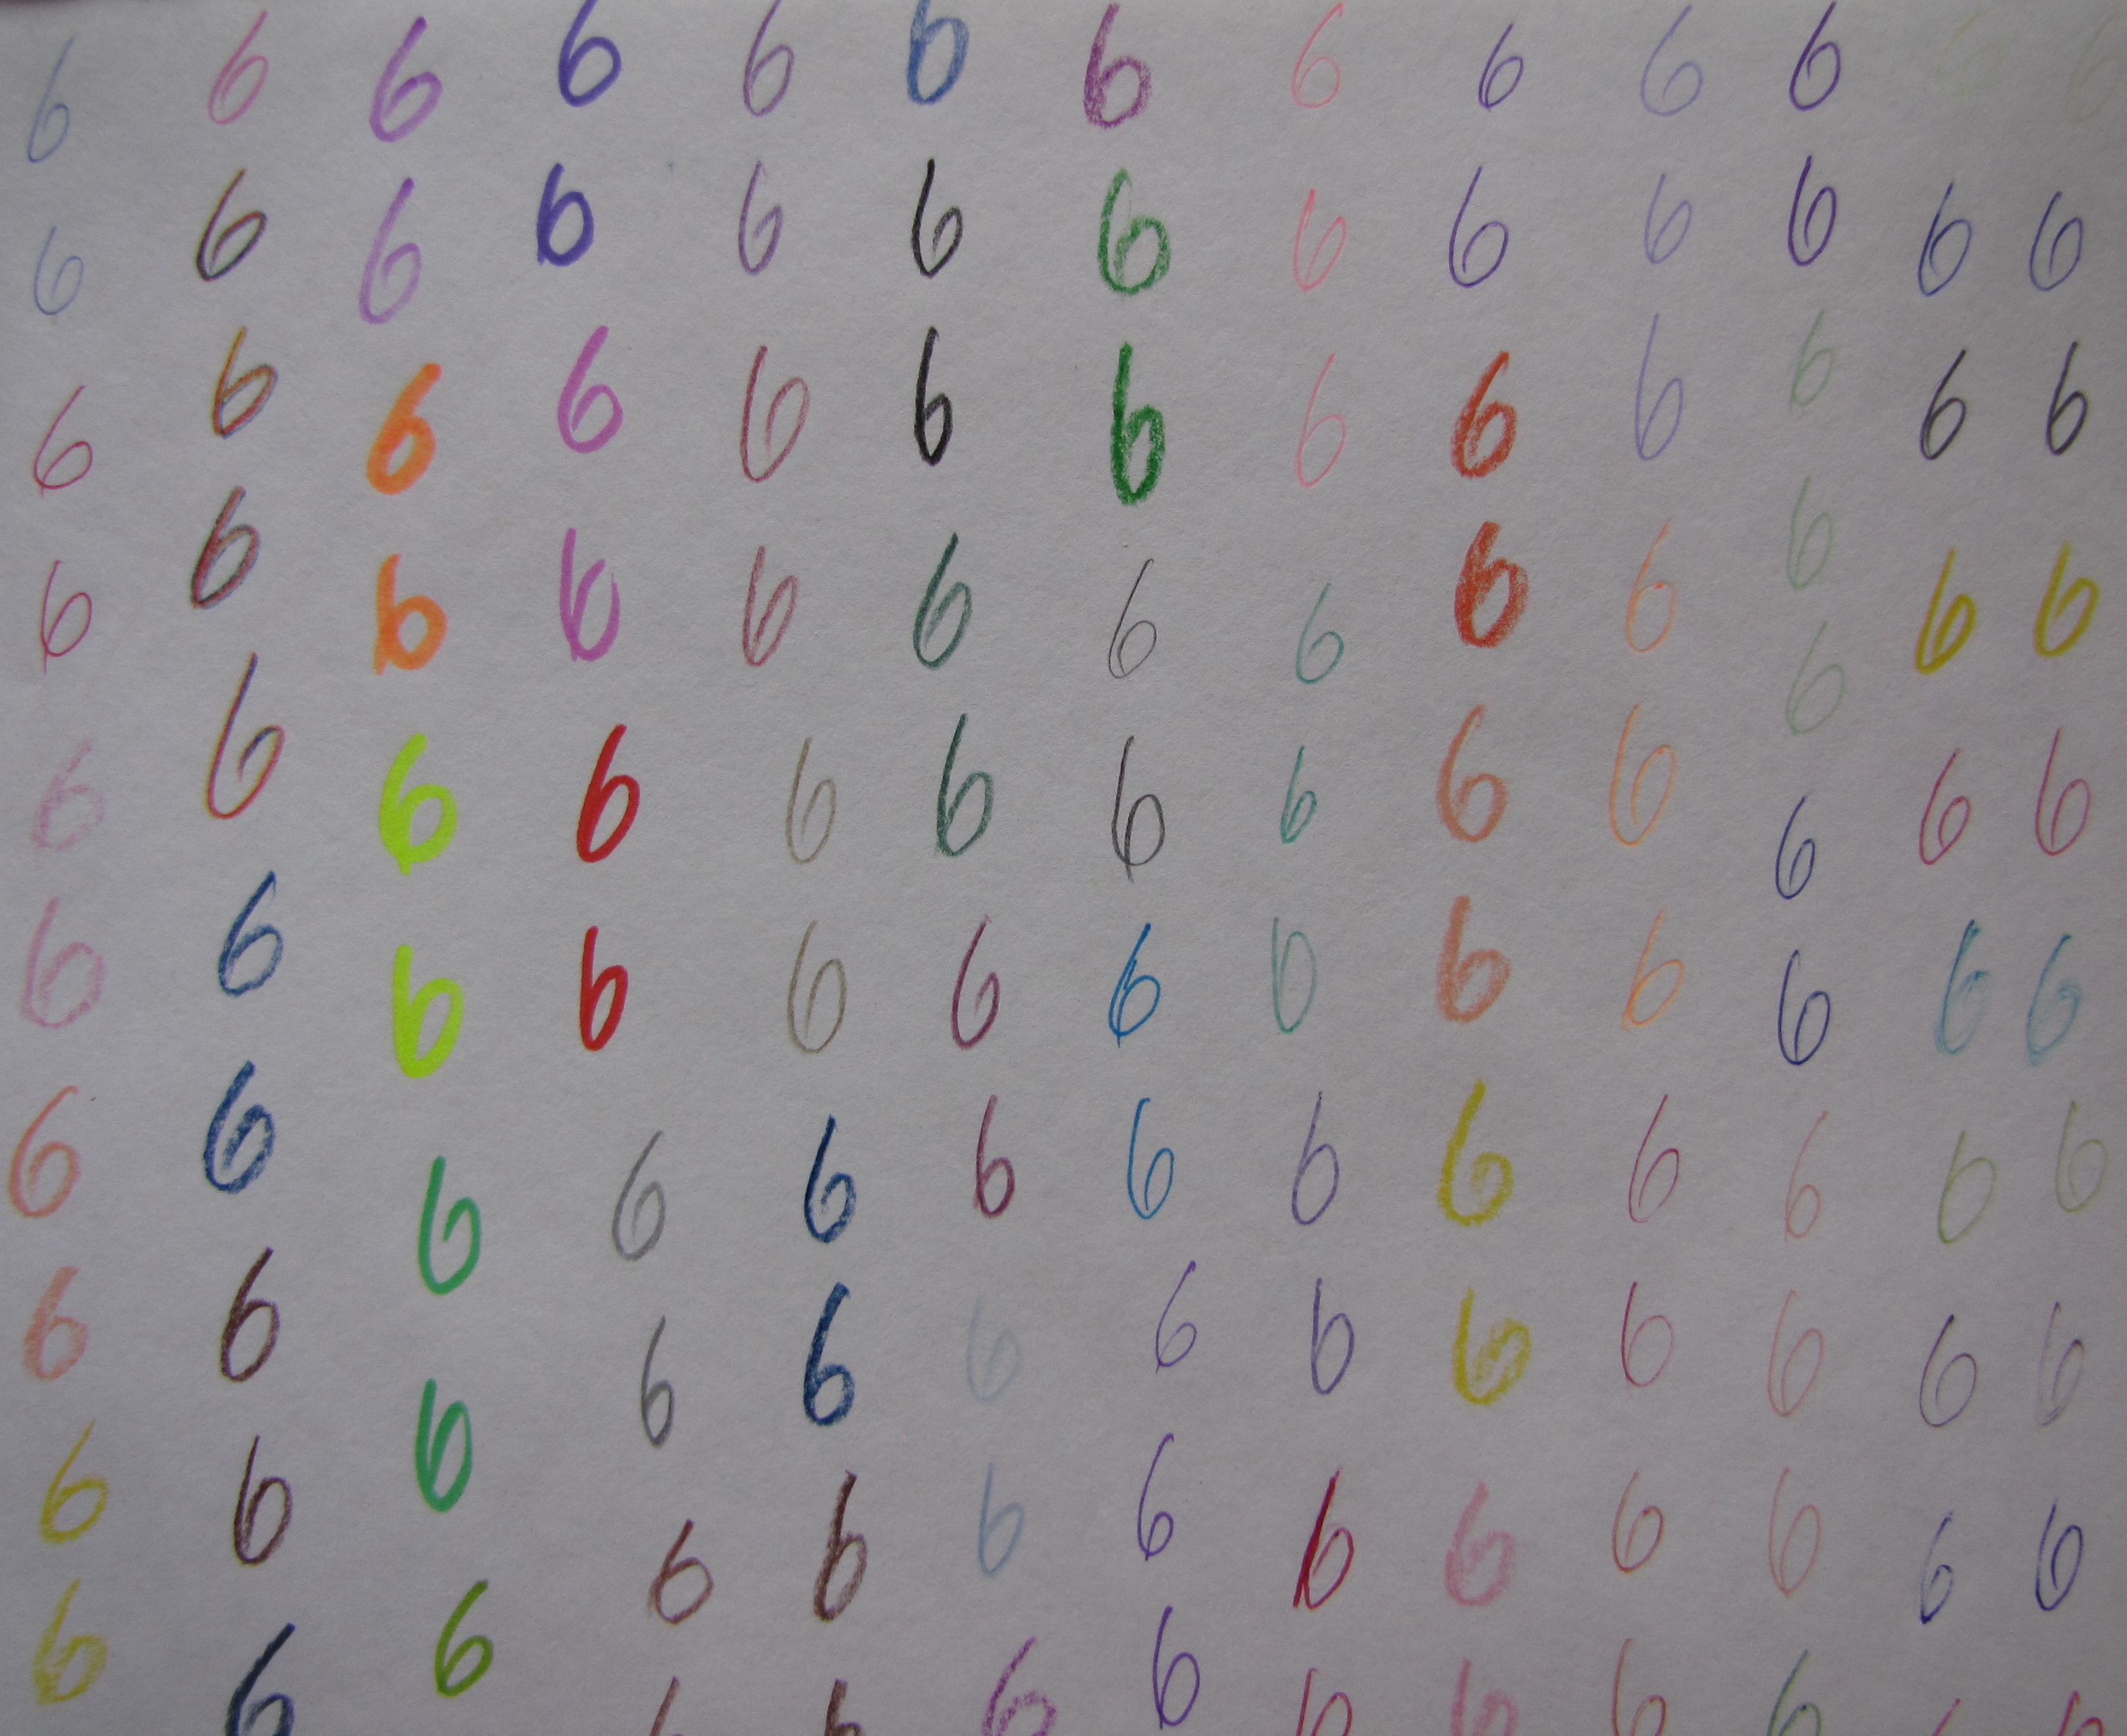 6 6 6 6 6 6 6 6 6 6 6
6 6 6 6 6 6 6 6 6 6 6 6 6
6 6 6 6 6 6 6 6 6 6 6 6 6
6 6 6 6 6 6 6 6 6 6 6 6 6
6 6 6 6 6 6 6 6 6 6 6 6 6
6 6 6 6 6 6 6 6 6 6 6 6 6
6 6 6 6 6 6 6 6 6 6 6 6 6
6 6 6 6 6 6 6 6 6 6 6 6 6
6 6 6 6 6 6 6 6 6 6 6 6 6
6 6 6 6 6 6 6 6 6 6 6